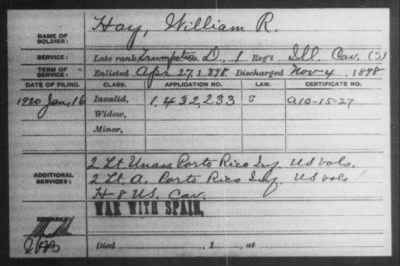 NAME OF SOLDIER: Hay, William R.
SERVICE: Late rank Trumpeter D, 1 Reg't Ill. Cav. (S)
TERM OF SERVICE: Enlisted Apr 27, 1898 Discharged Nov 4, 1898
DATE OF FILING. CLASS. APPLICATION NO. LAW. CERTIFICATE NO.
1920 Jan, 16 Invalid, 1,432,233 S A10-15-27
Widow,
Minor,
2 Lt Unass Porto Rico Inf. US Vols.
ADDITIONAL SERVICES: 2 Lt. A. Porto Rico Inf. US Vols
H 8 U.S. Cav.
WAR WITH SPAIN.
REMARKS:
Died , 1 , at